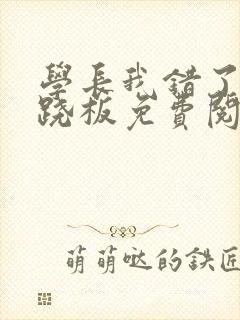 學長我錯了
跷板免費閱
萌萌哒的鉄匠